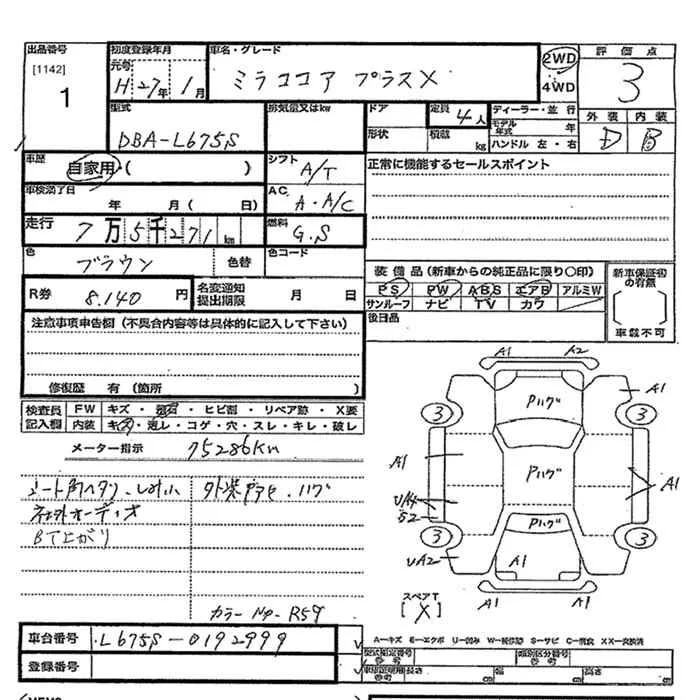 出品番号 初度登録年月 車名・グレード 2WD 評価点
[1142] 元号
1 H 27年 1月 ミラココア プラスX 4WD 3
型式 排気量又はkw ドア 定員 4人 ディーラー・並行 外装 内装
DBA-L675S 形状 積載 kg モデル年式 年 D B
ハンドル 左・右
車歴 自家用・( ) シフト A/T 正常に機能するセールスポイント
車検満了日 年 月( 日) AC A・A/C
走行 7万5千271km 燃料 G.S
色 ブラウン 色替 色コード
装備品(新車からの純正品に限り○印) 新車保証初の有無
R券 8.140円 名変通知提出期限 月 日 PS PW ABS エアB アルミW
サンルーフ ナビ TV カワ
後日品 車載不可
注意事項申告欄(不具合内容等は具体的に記入して下さい)
修復歴 有(箇所 )
検査員記入欄 FW キズ・飛石・ヒビ割・リペア跡・X要
内装 キズ・汚レ・コゲ・穴・スレ・キレ・破レ
メーター指示 75286Km
シート角ヘタリ・しみ小
社外オーディオ
カラーNo.R59
A1 A2
A1
ハゲ
3 3
A1 ハゲ A1
S2
ハゲ
3 3
UA2 A1
A1 A1
スペアT
[X]
車台番号 L675S-0192999
A-キズ E-エクボ U-凹み W-補修跡 S-サビ C-腐食 XX-交換済
型式指定番号 参考 類別区分番号 参考
登録番号 長さ 幅 高さ